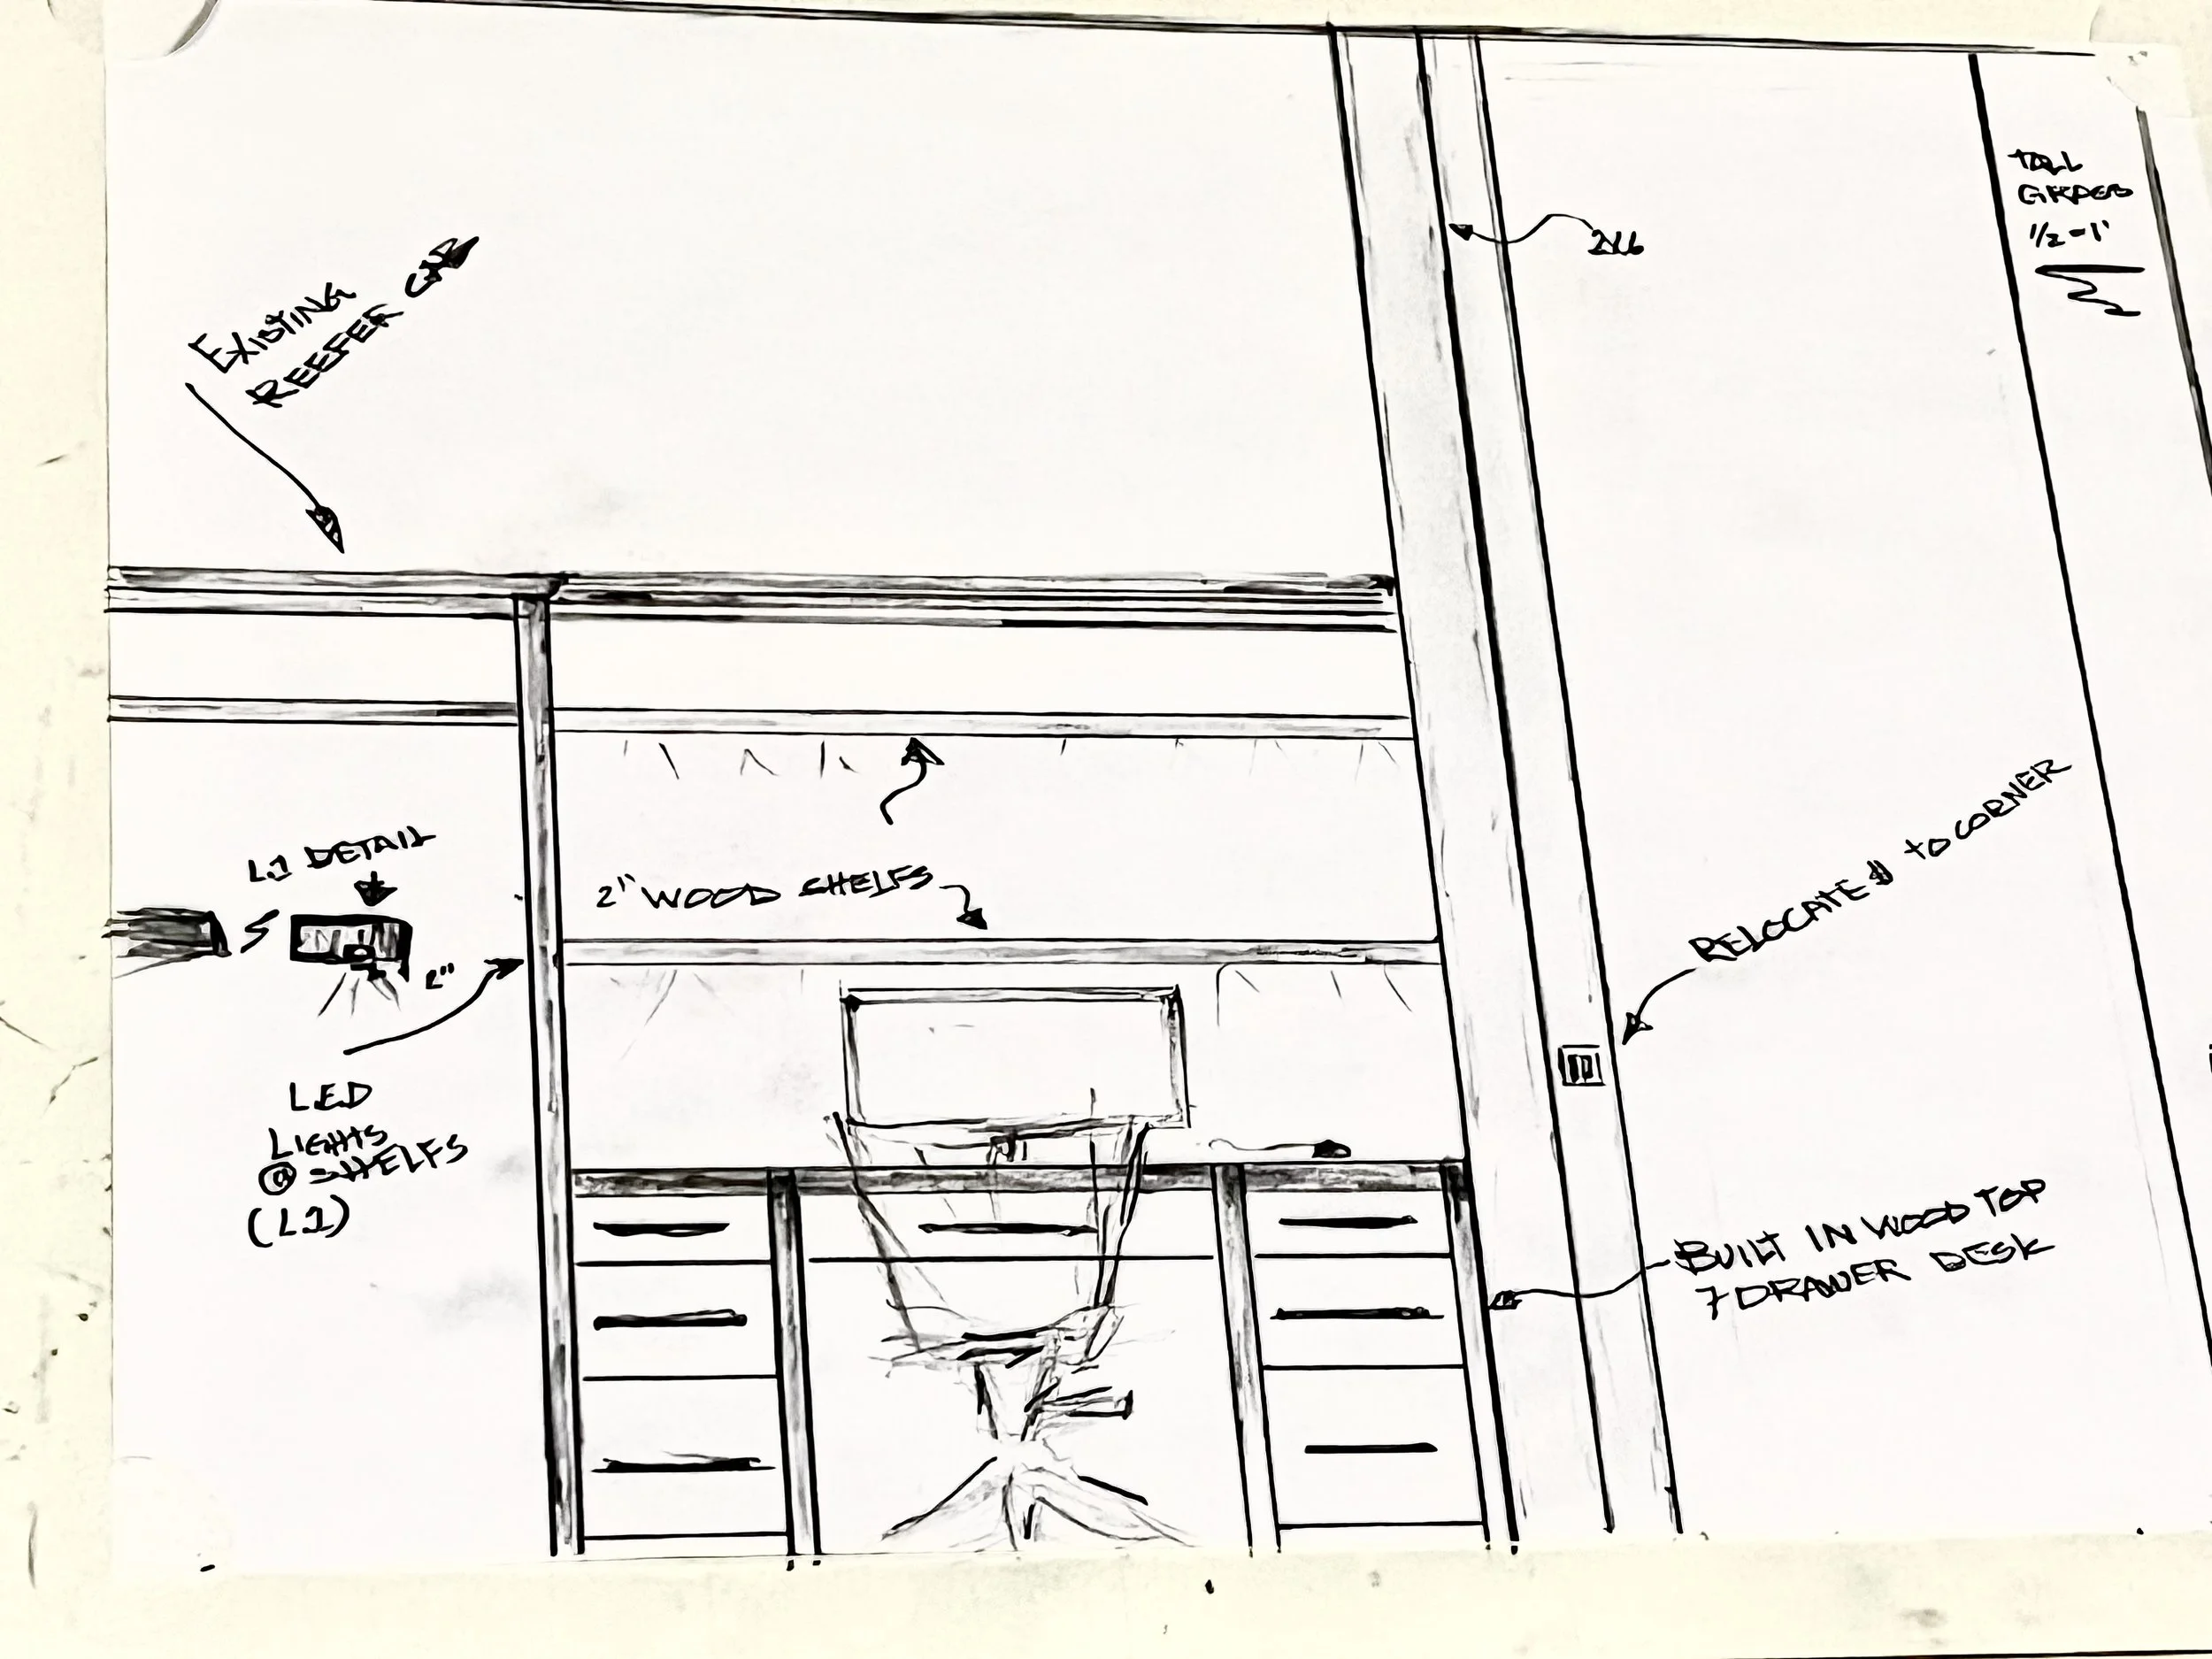 EXISTING
REEFER
2x6
1/2 = 1'
L1 DETAIL
2" WOOD SHELFS
2"
RELOCATE to CORNER
LED
LIGHTS
@ SHELFS
(L1)
BUILT IN WOOD TOP
7 DRAWER DESK